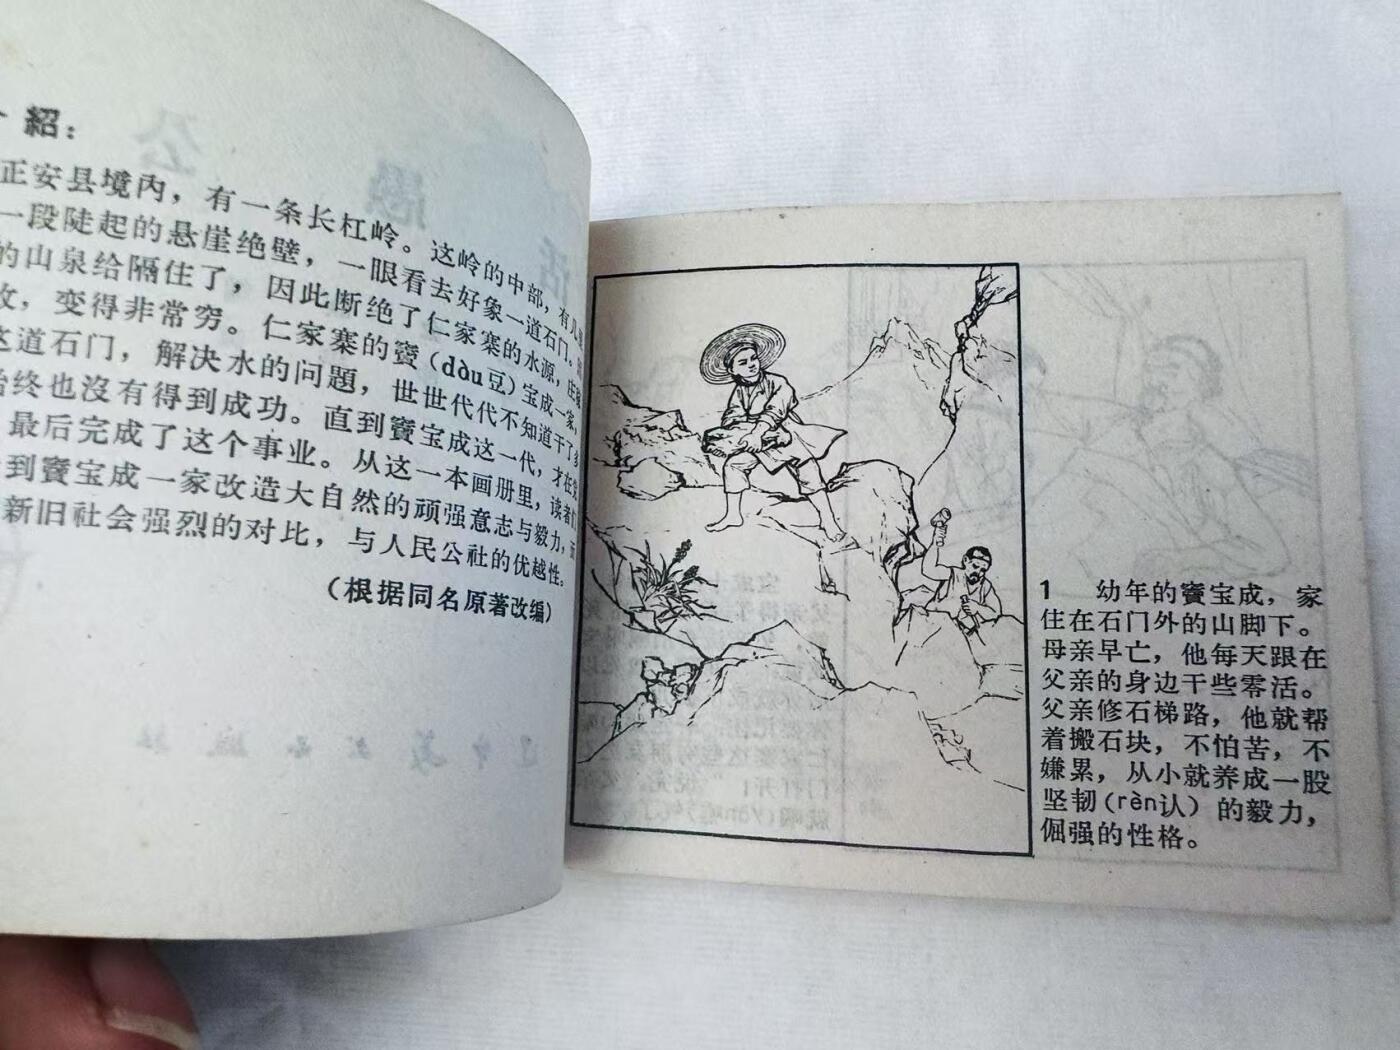 紹：
正安县境内，有一条长杠岭。这岭的中部，有几
一段陡起的悬崖绝壁，一眼看去好象一道石门。
的山泉给隔住了，因此断绝了仁家寨的水源，庄稼
收，变得非常穷。仁家寨的竇（dòu豆）宝成一家，
这道石门，解决水的问題，世世代代不知道干了多
始终也沒有得到成功。直到竇宝成这一代，才在党
最后完成了这个事业。从这一本画册里，读者们
到竇宝成一家改造大自然的顽强意志与毅力，
新旧社会强烈的对比，与人民公社的优越性。
（根据同名原著改编）
1 幼年的竇宝成，家
住在石门外的山脚下。
母亲早亡，他每天跟在
父亲的身边干些零活。
父亲修石梯路，他就帮
着搬石块，不怕苦，不
嫌累，从小就养成一股
坚韧（rèn认）的毅力，
倔强的性格。